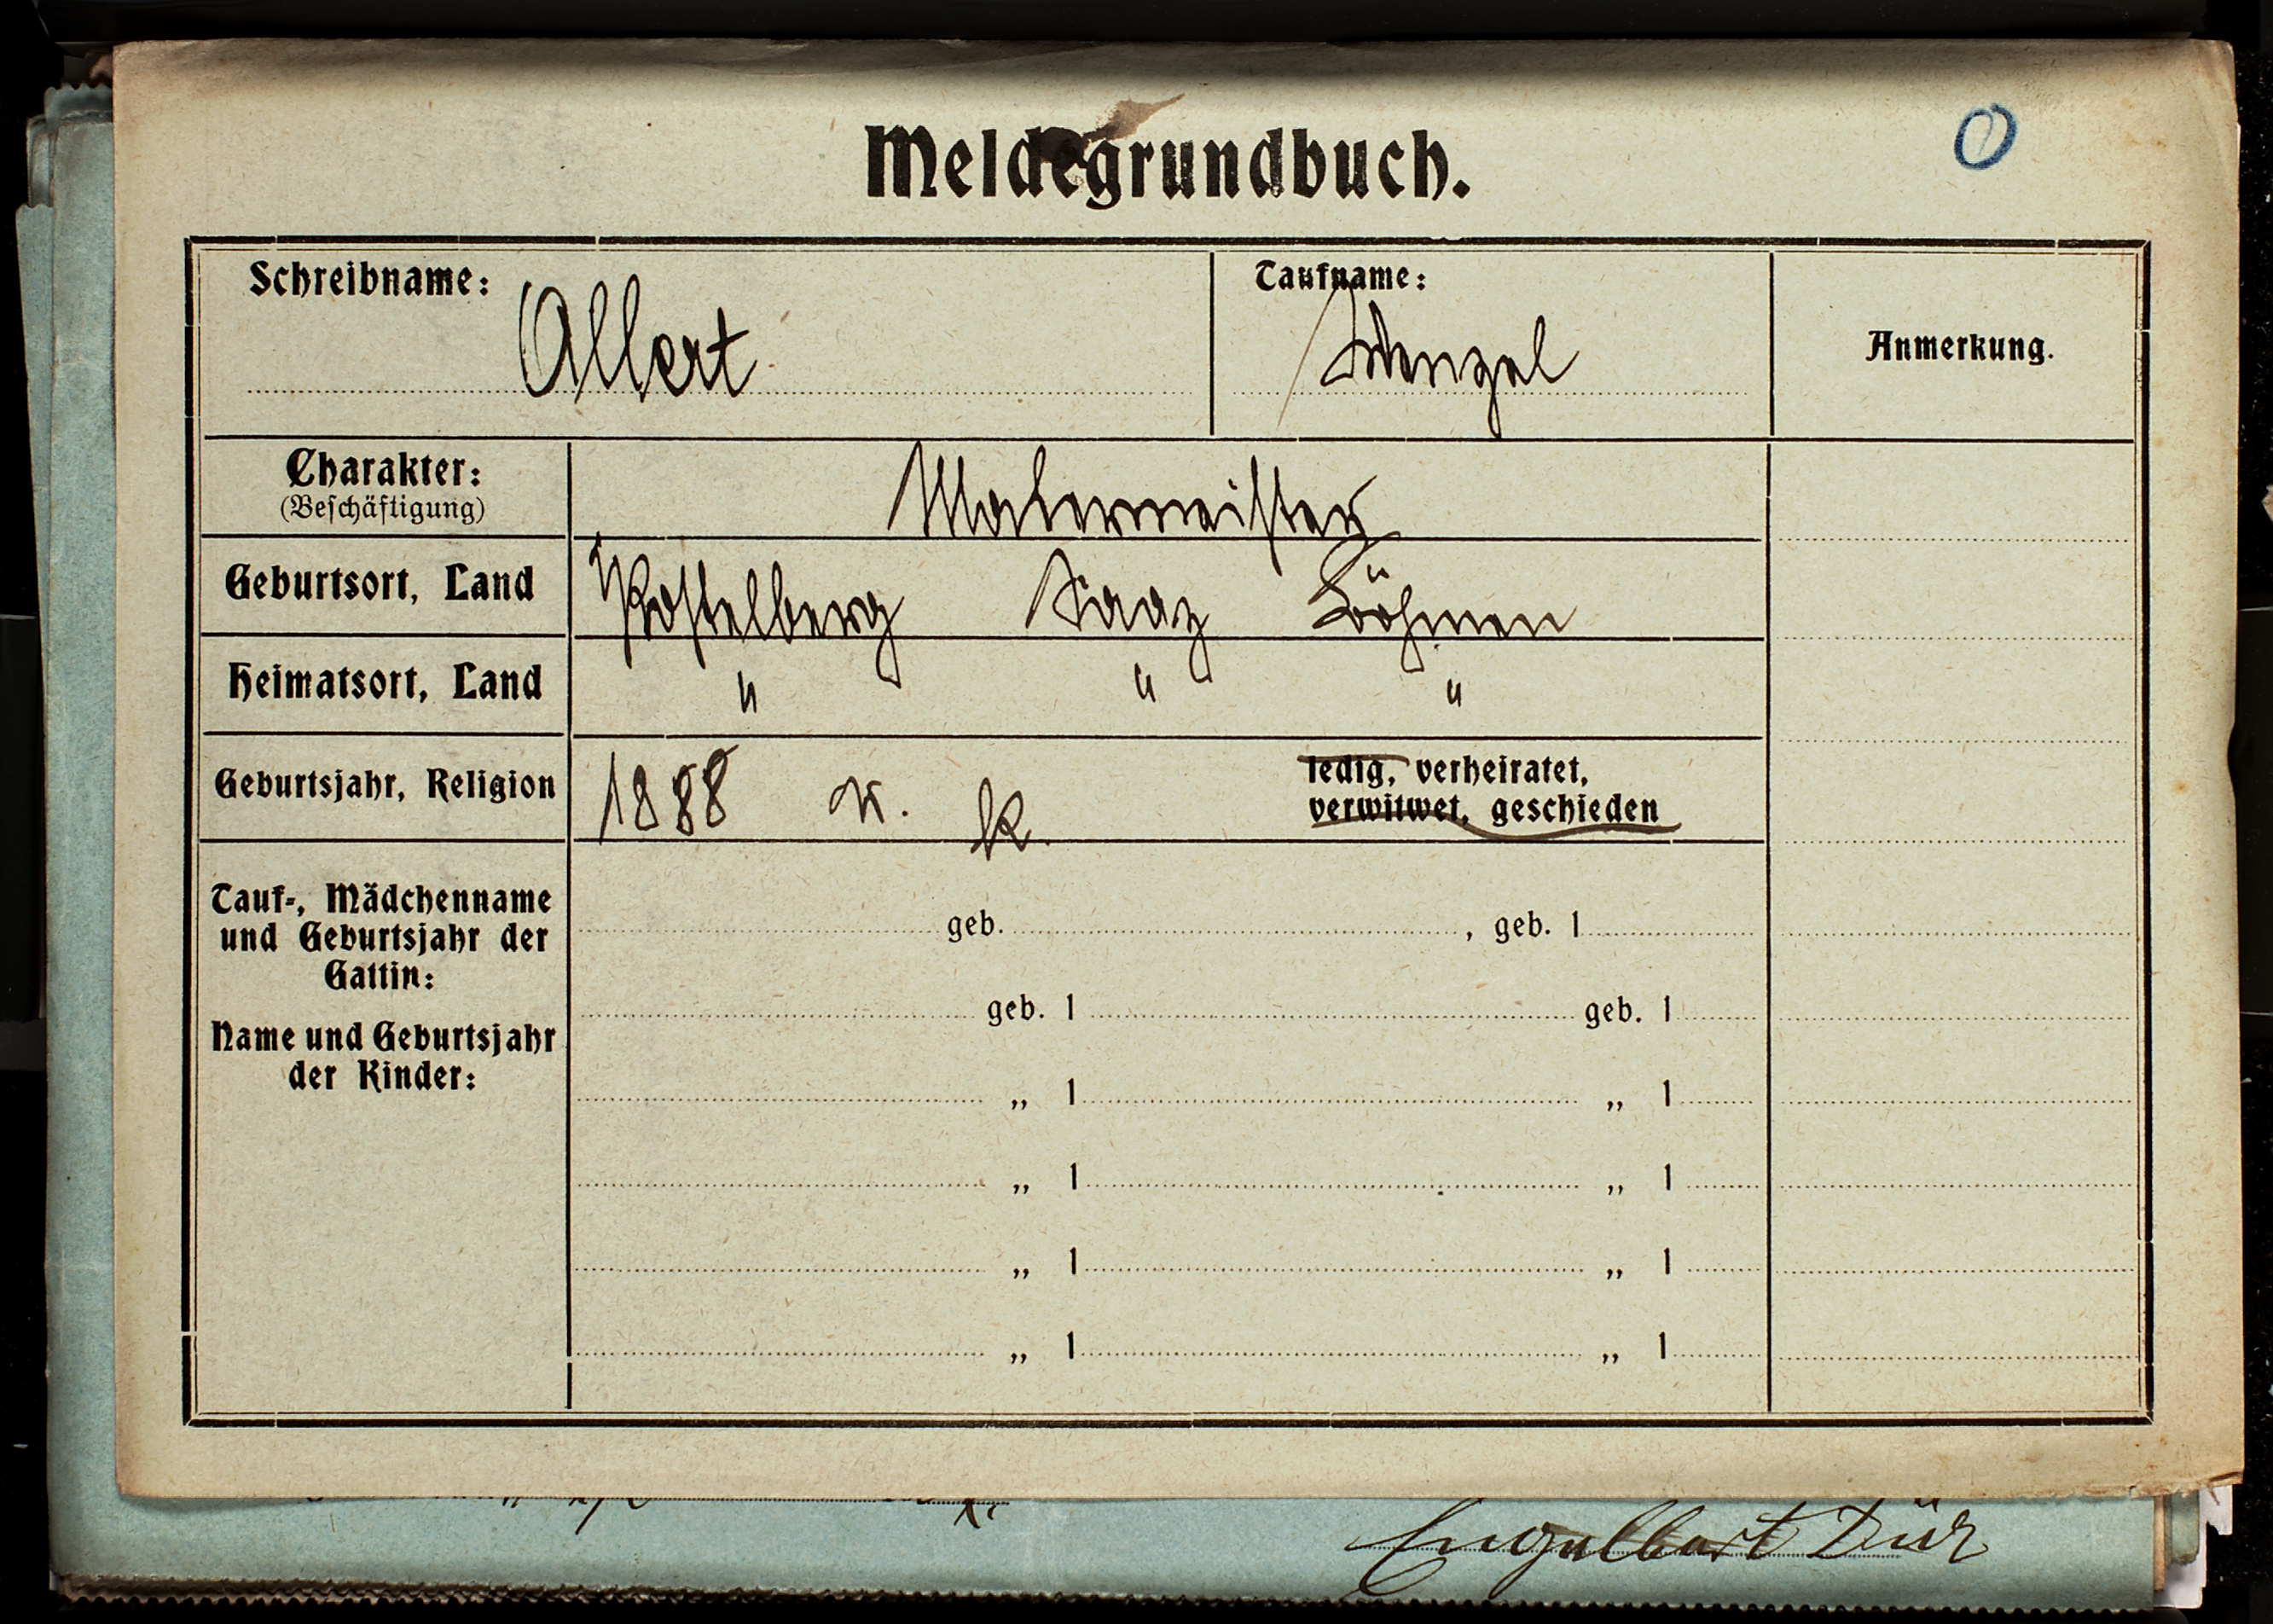 Meldegrundbuch.
O
Schreibname: Albert
Taufname: Wenzel
Anmerkung.
Charakter:
(Beschäftigung)
Malermeister
Geburtsort, Land
Postelberg Saaz Böhmen
Heimatsort, Land
" " "
Geburtsjahr, Religion
1888 r. k.
ledig, verheiratet,
verwitwet, geschieden
Tauf-, Mädchenname
und Geburtsjahr der
Gattin:
geb. , geb. 1
geb. 1 geb. 1
Name und Geburtsjahr
der Kinder:
„ 1 „ 1
„ 1 „ 1
„ 1 „ 1
„ 1 „ 1
Engelbert Dür